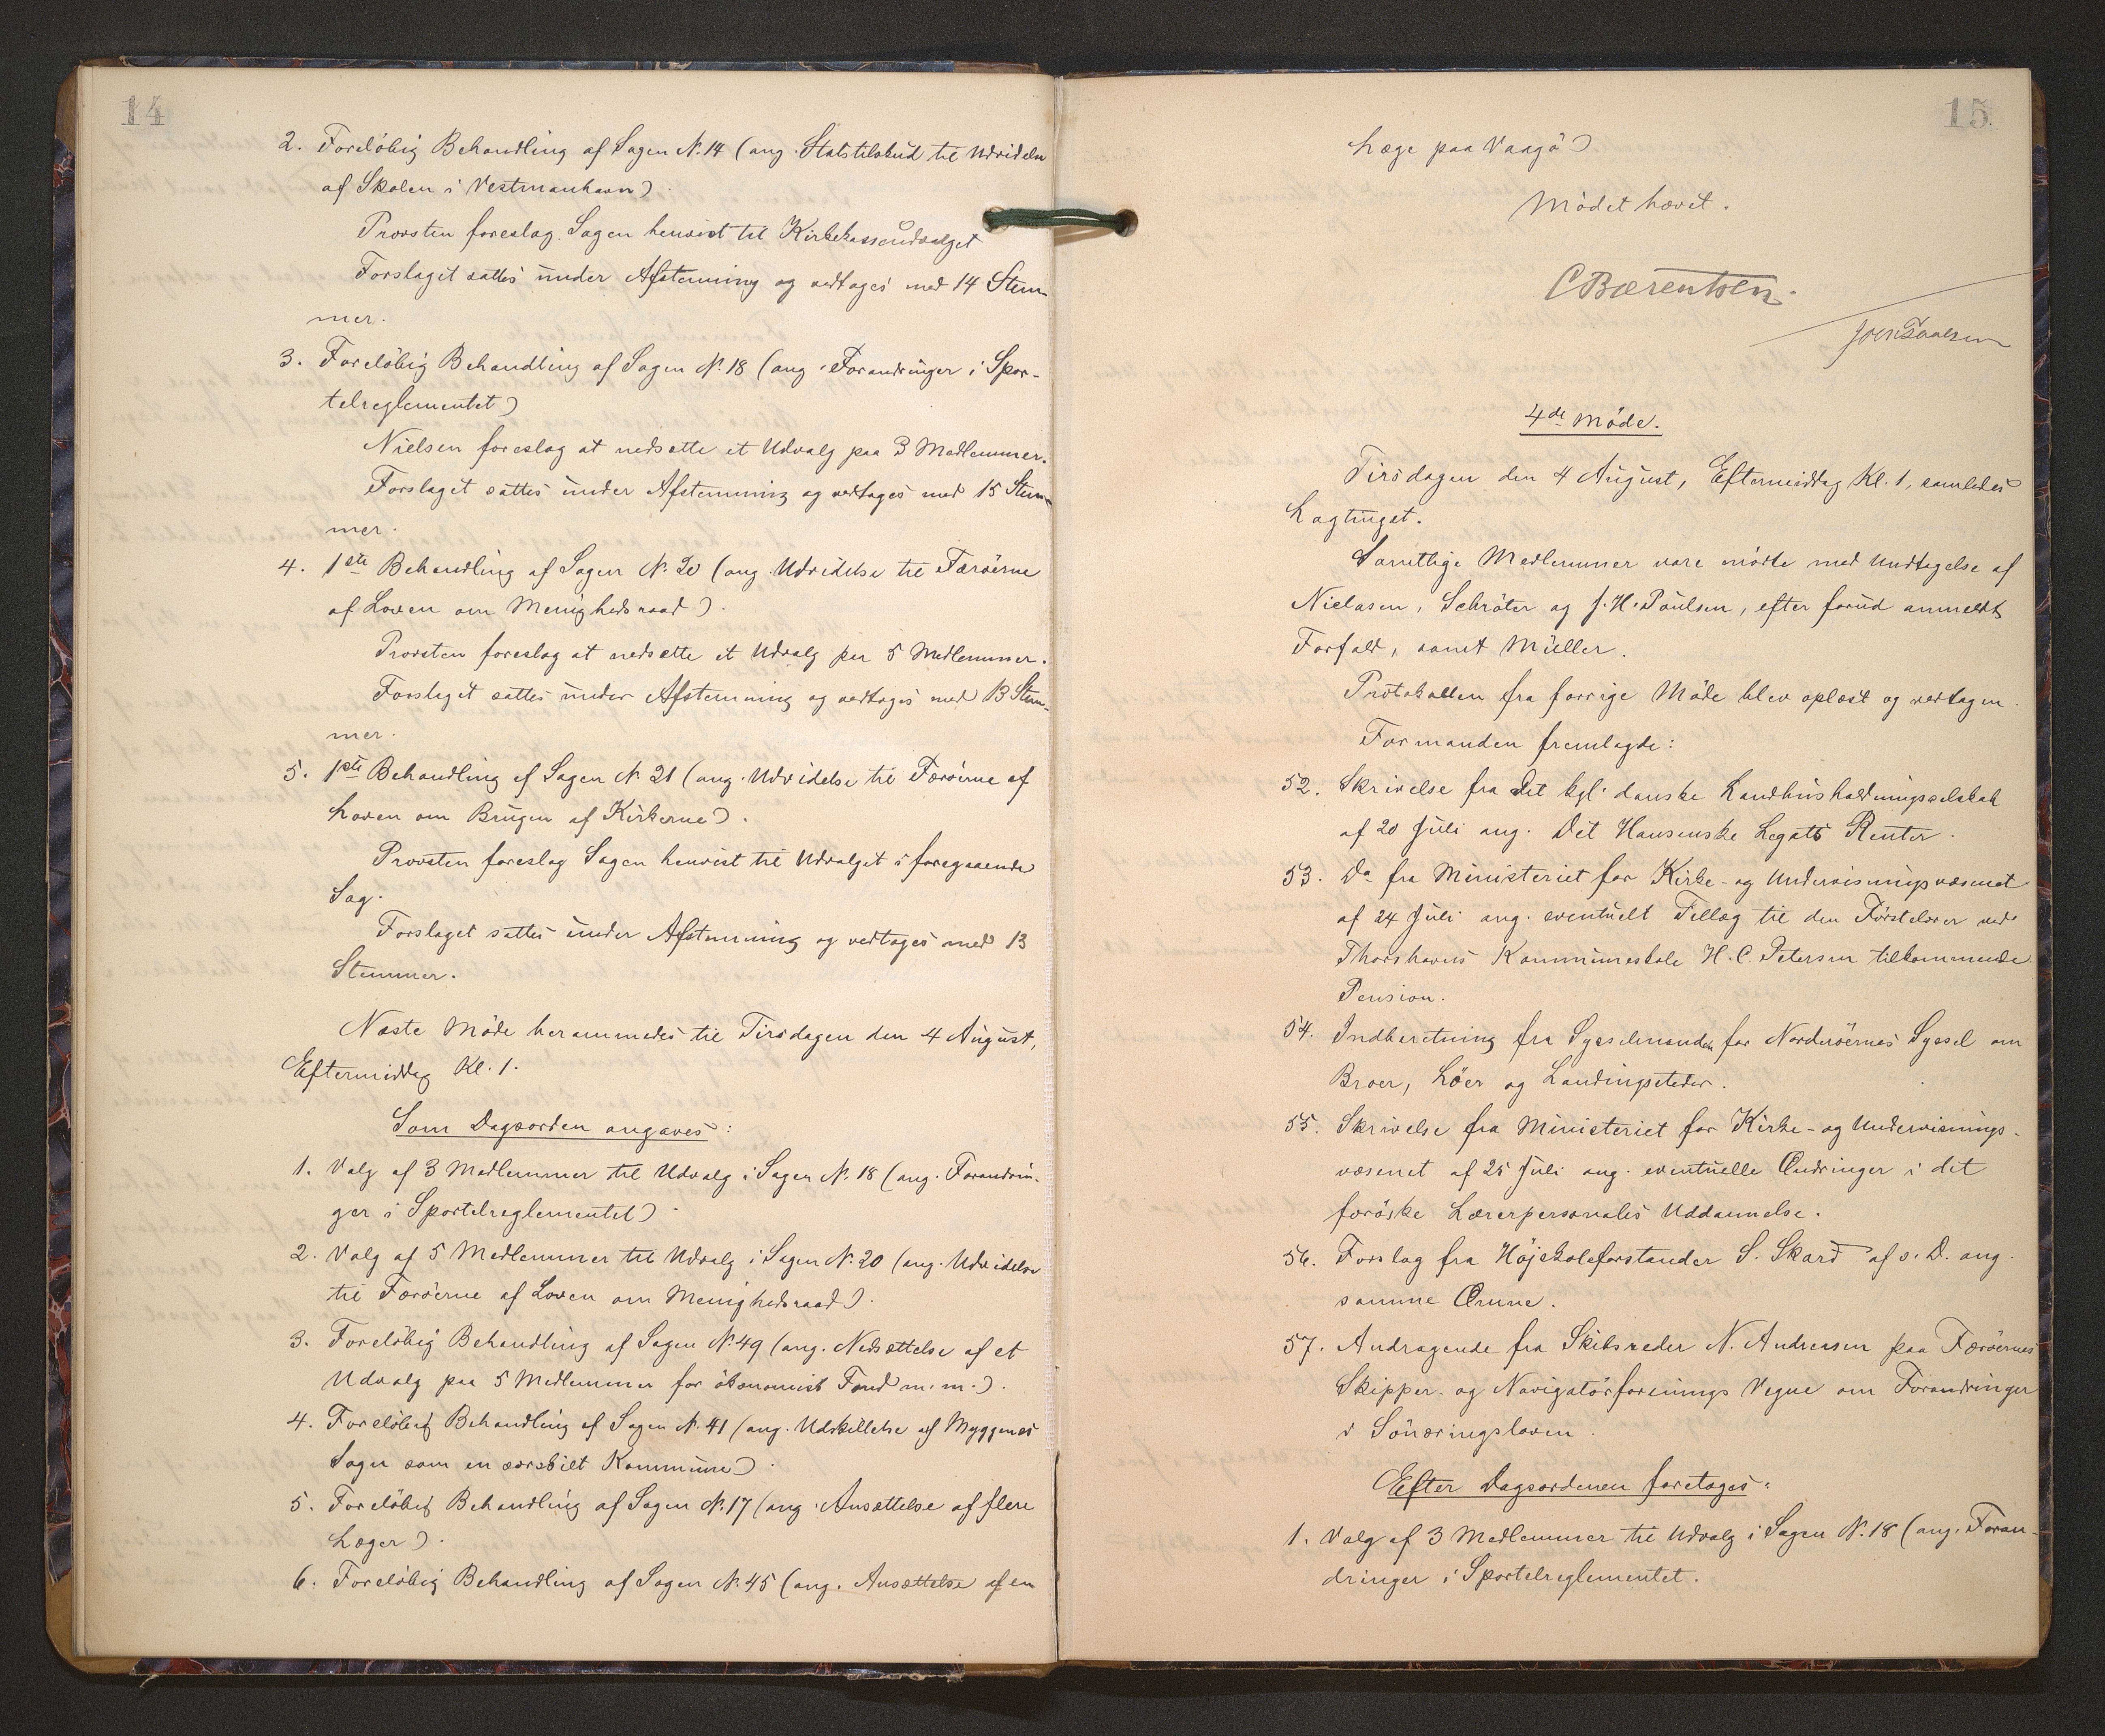 14
2. Foreløbig Behandling af Sagen N. 14 (ang. Statstilskud til Udvidelse
af Skolen i Vestmanhavn).
Provsten foreslog Sagen henvist til Kirkekasseudvalget
Forslaget sattes under Afstemning og vedtoges med 14 Stem-
mer.
3. Foreløbig Behandling af Sagen N. 18 (ang. Forandringer i Spor-
telreglementet)
Nielsen foreslog at nedsætte et Udvalg paa 3 Medlemmer.
Forslaget sattes under Afstemning og vedtoges med 15 Stem-
mer.
4. 1ste Behandling af Sagen N. 20 (ang. Udvidelse til Færøerne
af Loven om Menighedsraad).
Provsten foreslog at nedsætte et Udvalg paa 5 Medlemmer.
Forslaget sattes under Afstemning og vedtoges med 13 Stem-
mer.
5. 1ste Behandling af Sagen N. 21 (ang. Udvidelse til Færøerne af
Loven om Brugen af Kirkerne).
Provsten foreslog Sagen henvist til Udvalget i foregaaende
Sag.
Forslaget sattes under Afstemning og vedtoges med 13
Stemmer.
Næste Møde berammedes til Tirsdagen den 4 August,
Eftermiddag Kl. 1.
Som Dagsorden angaves:
1. Valg af 3 Medlemmer til Udvalg i Sagen N. 18 (ang. Forandrin-
ger i Sportelreglementet).
2. Valg af 5 Medlemmer til Udvalg i Sagen N. 20 (ang. Udvidelse
til Færøerne af Loven om Menighedsraad).
3. Foreløbig Behandling af Sagen N. 49 (ang. Nedsættelse af et
Udvalg paa 5 Medlemmer for økonomisk Fond m. m.).
4. Foreløbig Behandling af Sagen N. 41 (ang. Udskillelse af Myggenæs
Sogn som en særskilt Kommune).
5. Foreløbig Behandling af Sagen N. 17 (ang. Ansættelse af flere
Læger).
6. Foreløbig Behandling af Sagen N. 45 (ang. Ansættelse af en
15
Læge paa Vaagø)
Mødet hævet.
C Bærentsen.
Joen Poulsen
4de Møde.
Tirsdagen den 4 August, Eftermiddag Kl. 1, samledes
Lagtinget.
Samtlige Medlemmer vare mødte med Undtagelse af
Niclasen, Schrøter og J. H. Poulsen, efter forud anmeldt
Forfald, samt Müller.
Protokollen fra forrige Møde blev oplæst og vedtagen.
Formanden fremlagde:
52. Skrivelse fra Det kgl. danske Landhusholdningsselskab
af 20 Juli ang. Det Hansenske Legats Renter.
53. Do fra Ministeriet for Kirke- og Undervisningsvæsenet
af 24 Juli ang. eventuelt Tillæg til den Førstelærer ved
Thorshavns Kommuneskole H. C. Petersen tilkommende
Pension.
54. Indberetning fra Sysselmanden for Norderøernes Syssel om
Broer, Løer og Landingssteder.
55. Skrivelse fra Ministeriet for Kirke- og Undervisnings-
væsenet af 25 Juli ang. eventuelle Ændringer i det
færøske Lærerpersonales Uddannelse.
56. Forslag fra Højskoleforstander S. Skard af s. D. ang.
samme Æmne.
57. Andragende fra Skibsreder N. Andreasen paa Færøernes
Skipper- og Navigatørforenings Vegne om Forandringer
i Sønæringsloven.
Efter Dagsordenen foretoges:
1. Valg af 3 Medlemmer til Udvalg i Sagen N. 18 (ang. Foran-
dringer i Sportelreglementet.